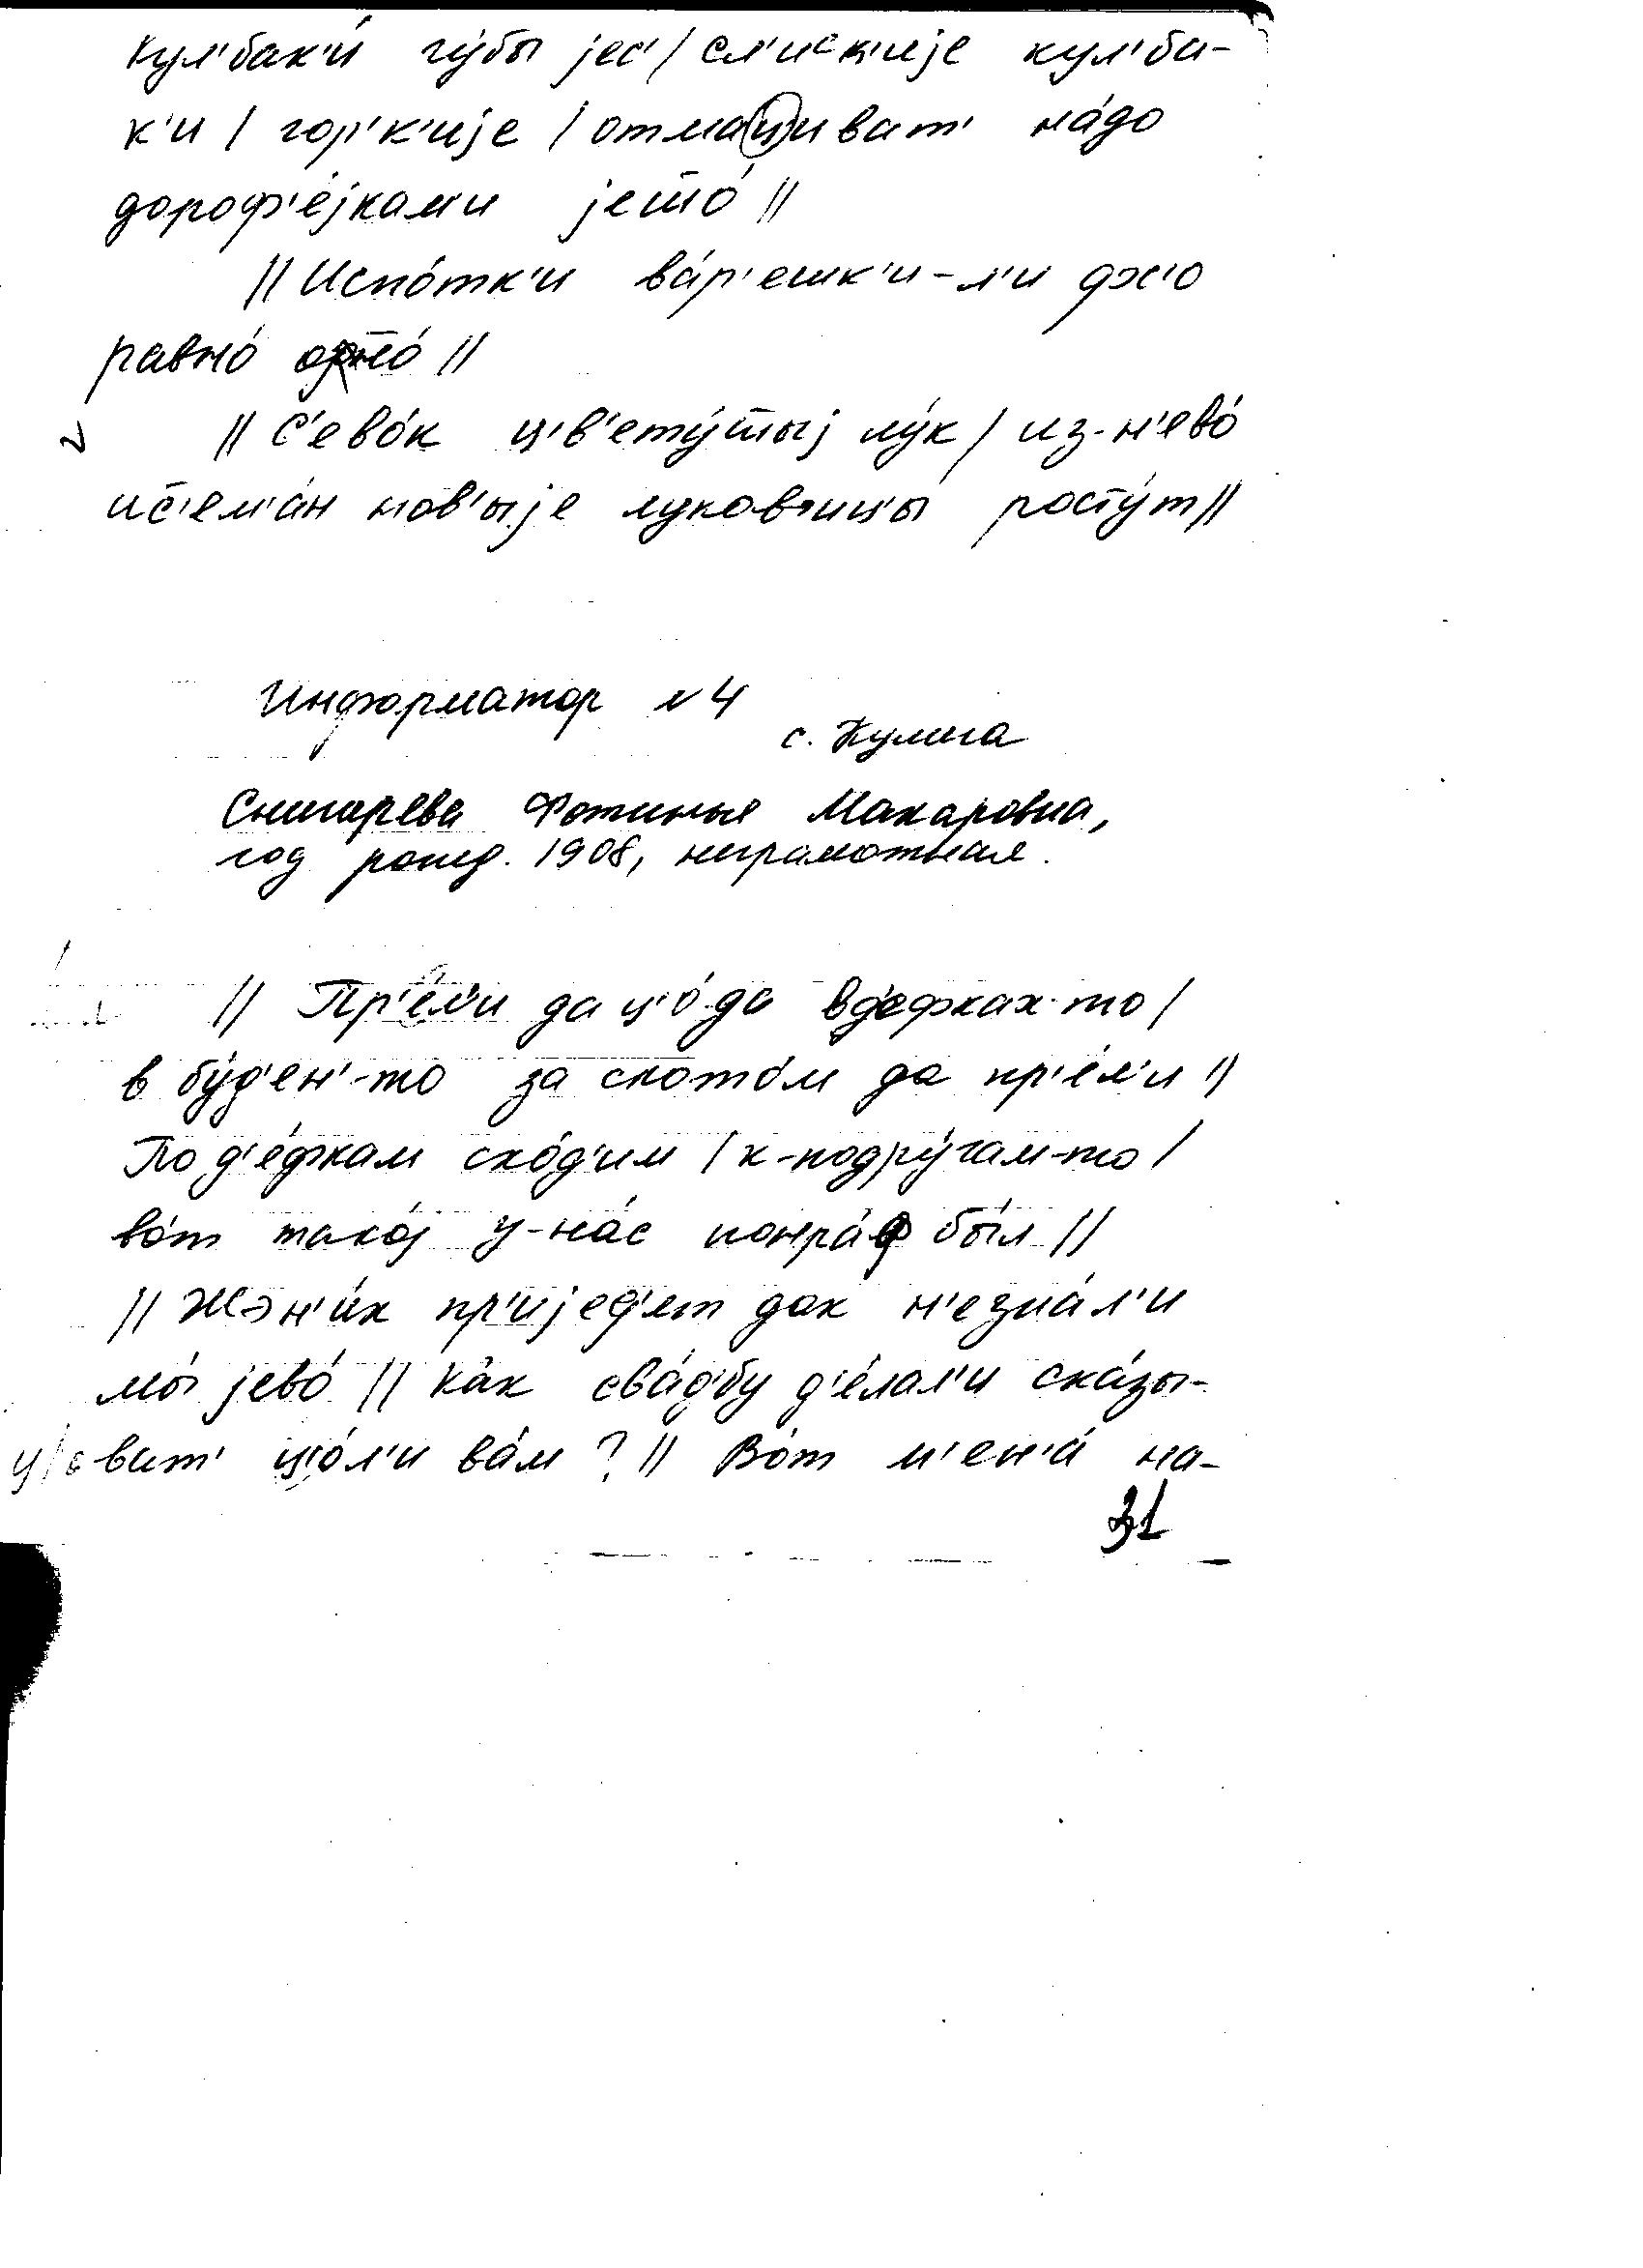 кул'бак'и́ гу́бы јес'/ сл'иск'ије кул'ба-
к'и / гор'к'ије / отмациват' на́до
дороф'е́јкам'и јето́ //
// Испо́тк'и ва́р'ешк'и-л'и
равно́ //
// С'ево́к ц'в'ету́т̄ыј лу́к / из-н'ево́
нов'ыје луков'ицы росту́т //
Информатор N 4
с. Кулига
Снигирева Фотинья Макаровна,
год рожд. 1908, неграмотная.
// Пр'е́л'и да ц'о́-да в д'е́фках-то /
в бу́д'ен'-то за ското́м да пр'е́л'и //
По д'е́фкам схо́д'им / к-подру́гам-то /
во́т тако́ј у-на́с нонра́ф бы́л //
// Жэн'и́х пр'ијед'ет дак н'езна́л'и
мы́ јево́ // ка́к сва́д'бу д'е́лал'и ска́зы-
ват' ц'о́л'и ва́м ? // Во́т м'ен'а́ на-
31